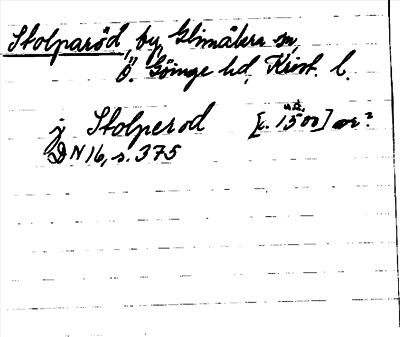 Stolparöd, by, Glimåkra sn,
Ö. Göinge hd, Krist. l.
j Stolperod [c. 1500] or?
DN 16, s. 375